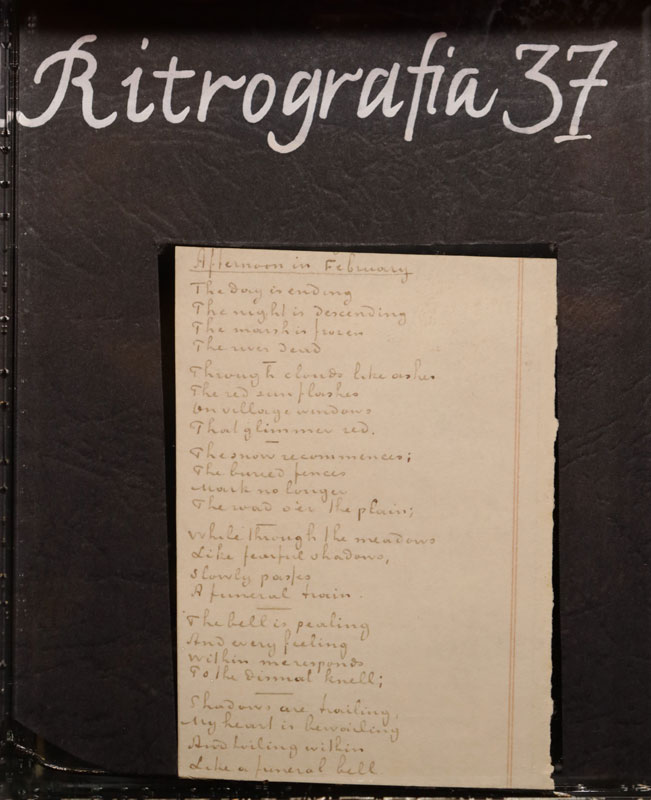 Ritrografia 37
Afternoon in February
The day is ending
The night is descending
The marsh is frozen
The river dead
Through clouds like ashes
The red sun flashes
On village windows
That glimmer red.
The snow recommences;
The buried fences
Mark no longer
The road o'er the plain;
While through the meadows
Like fearful shadows,
Slowly passes
A funeral train.
The bell is pealing
And every feeling
Within me responds
To the dismal knell;
Shadows are trailing,
My heart is bewailing
And toiling within
Like a funeral bell.